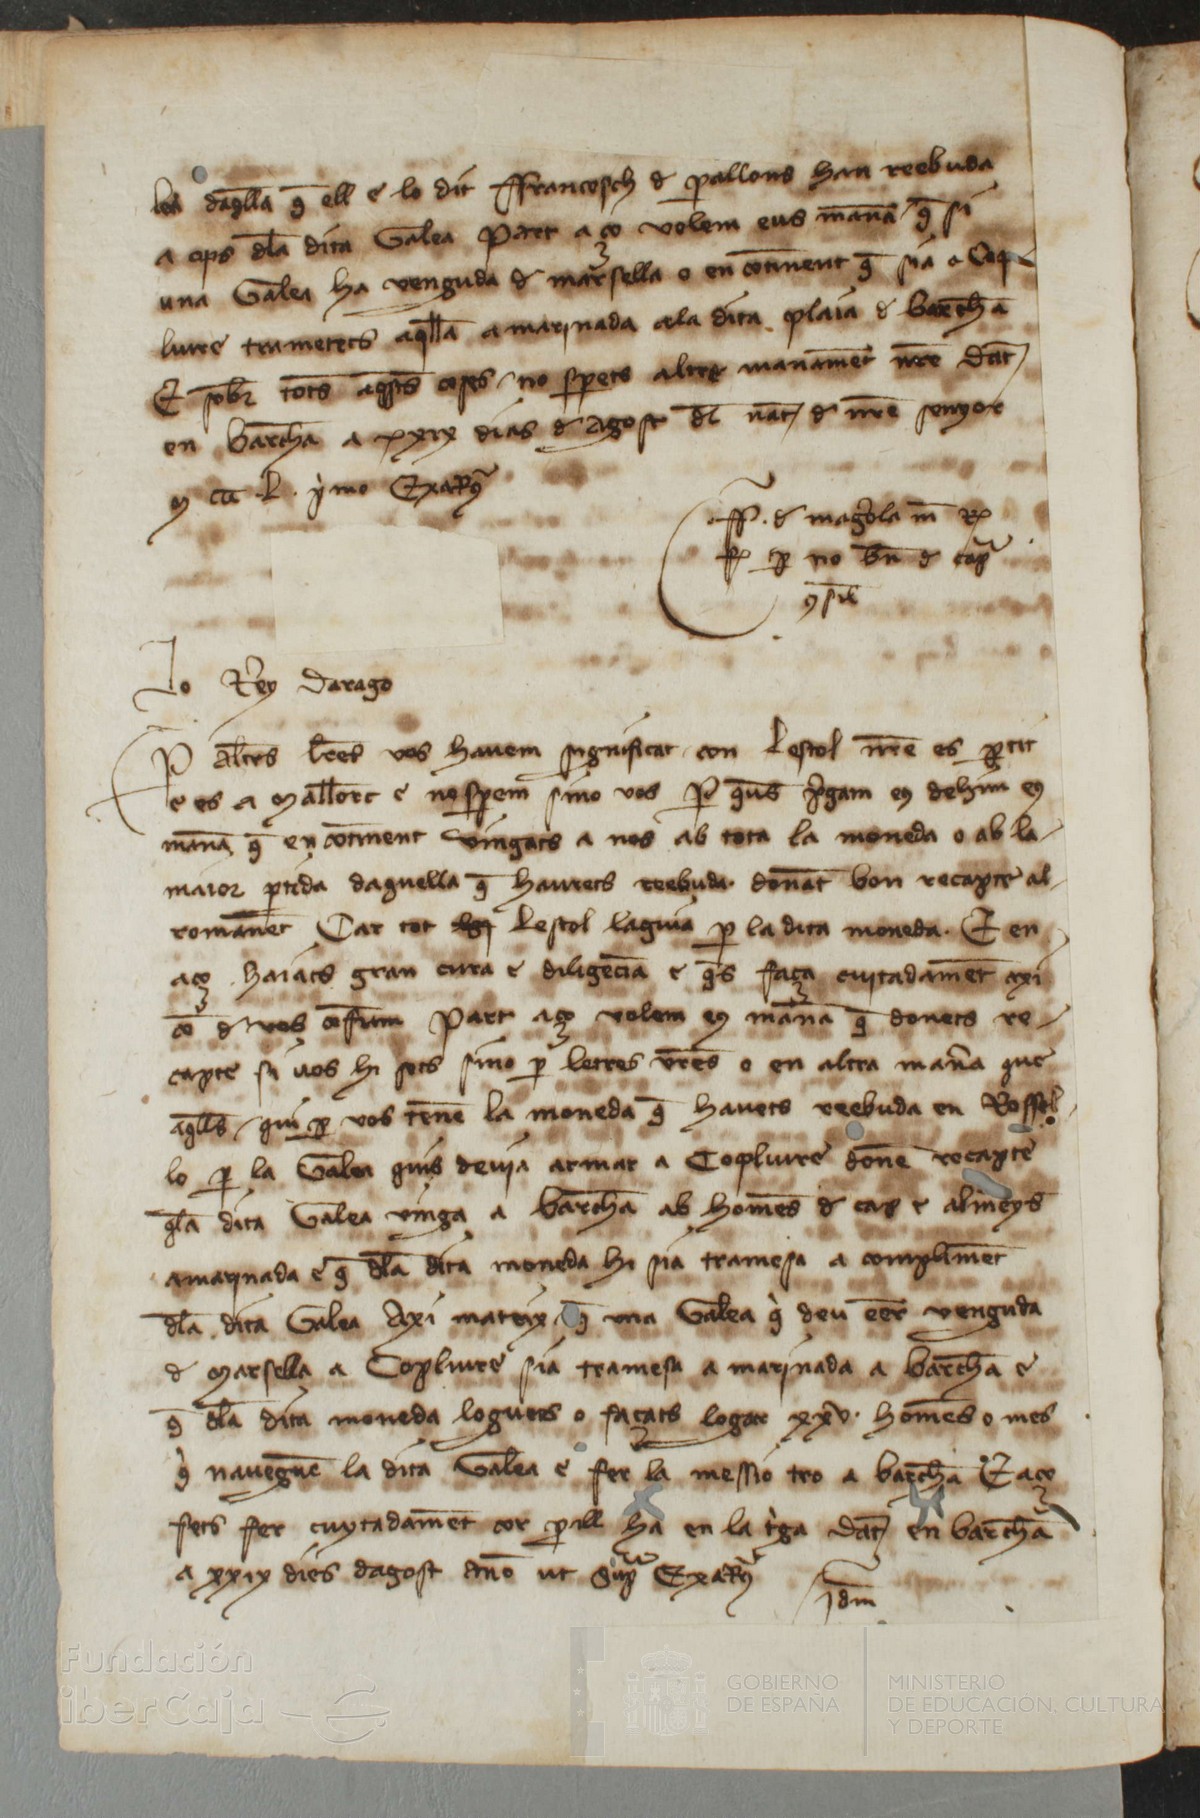 daq̄lla q̄ ell e lo dit ffrancesch d p̱allous han reebuda
a ops dl̄a dita Galea Part aço volem eus manā q̄ si
una Galea ha venguda d marsella o en cōtinent q̄ sia a Cop
liure trametets aq̄lla amarinada ala dita plaia d barch̄a
E sobr̄ tots aq̄sts coses no sp̱ets altre manamēt nr̄e Dat̄
en barch̄a a xxix dias d Agost dl̄ nat̄ d nr̄e senyor
m ccc .L. pͥmo Exaꝶ
.ff. d magrola m̄
p̱ no bn̄ d cap̄
Lo Rey Darago
P alt̄rs lr̄es vos havem significat con Lestol nr̄e es p̱tit
e es a Mallorc e no sp̱em sino vos P q̄us p̄gam eꝰ dehim eꝰ
manā q̄ en cōtinent vingats a nos ab tota la moneda o ab la
maior p̱tida daquella q̄ haurets reebuda donāt bon recapte al
romanēt Car tot Lestol laguia p̱ la dita moneda. E en
aço haiats gran cura e diligēcia e q̄s faça cuitadamēt axi
cō d vos cōfiam Part aço volem eꝰ manā q̄ donets re
capte si vos hi sots sino p̱ letres vr̄es o en altra man̄a que
aq̄lls qui p̱ vos tenē la moneda q̄ havets reebuda en Rossel
lo p̱ la Galea quis devia armar a Copliure donē recapte
q̄la dita Galea vinga a barch̄a ab homēs d cap e almeys
amarinada e q̄ dl̄a dita moneda hi sia tramesa a complimēt
dl̄a dita Galea Axi mateix q̄ una Galea qͥ deu eēr venguda
d Marsella a Copliure sia tramesa amarinada a barch̄a e
q̄ dl̄a dita moneda loguets o façats logar xxv. homēs o mes
qͥ naveguē la dita Galea e fer la messio tro a barch̄a E aço
fets fer cuytadamēt cor p̱ill ha en la tͥga Dat̄ en barch̄a
a xxix dies dagost an̄o ut Sup̄ Exaꝶ
Idm̄
Fundación
iberCaja
GOBIERNO
DE ESPAÑA
MINISTERIO
DE EDUCACIÓN, CULTURA
Y DEPORTE